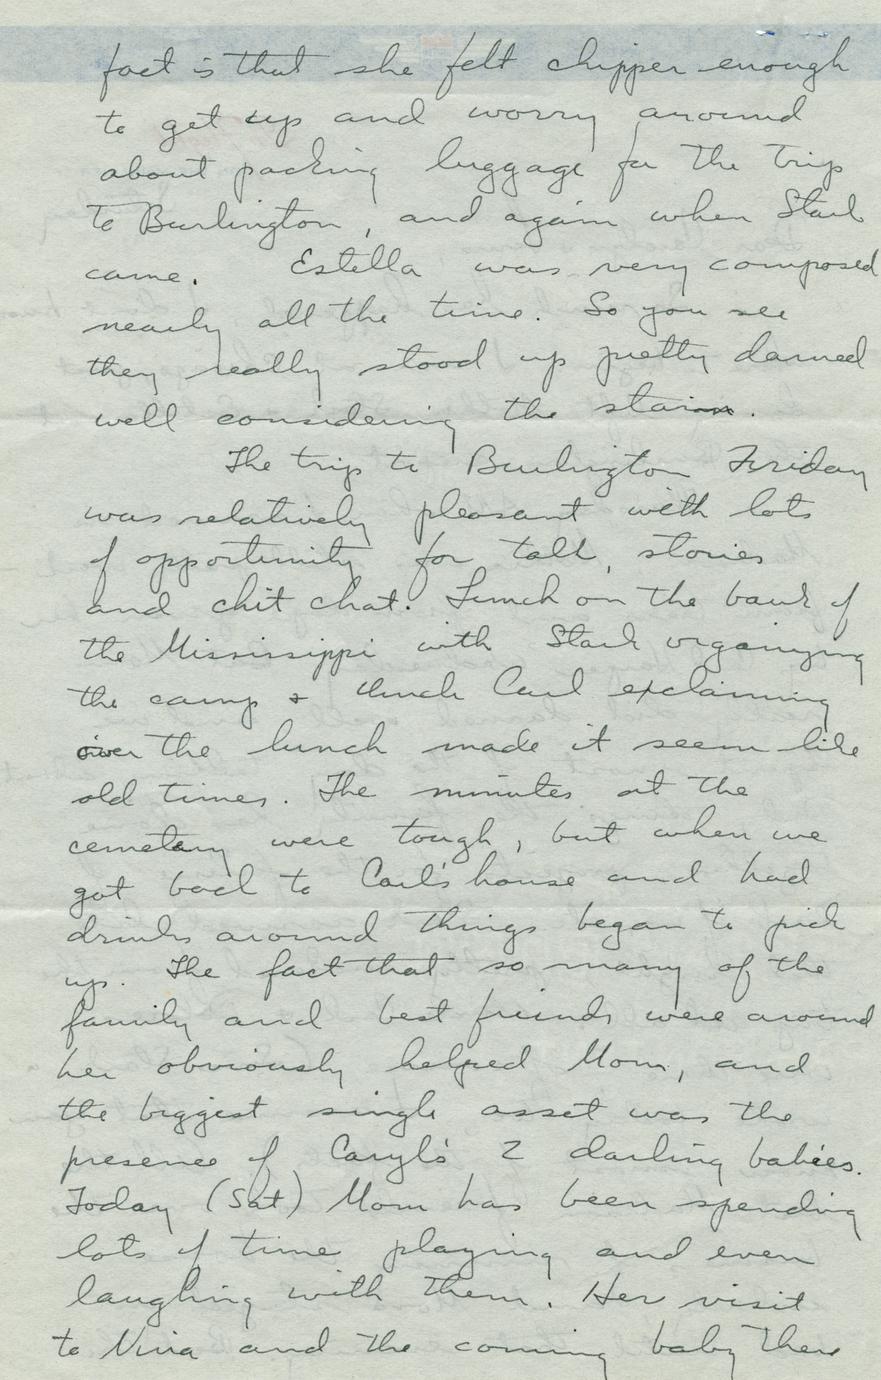 fact is that she felt chipper enough
to get up and worry around
about packing luggage for the trip
to Burlington, and again when Stark
came. Estella was very composed
nearly all the time. So you see
they really stood up pretty darned
well considering the strain.
The trip to Burlington Friday
was relatively pleasant with lots
of opportunity for talk, stories
and chit chat. Lunch on the bank of
the Mississippi with Stark organizing
the camp & Uncle Carl exclaiming
over the lunch made it seem like
old times. The minutes at the
cemetery were tough, but when we
got back to Carl's house and had
drinks around things began to pick
up. The fact that so many of the
family and best friends were around
her obviously helped Mom, and
the biggest single asset was the
presence of Caryl's 2 darling babies.
Today (Sat) Mom has been spending
lots of time playing and even
laughing with them. Her visit
to Nina and the coming baby there